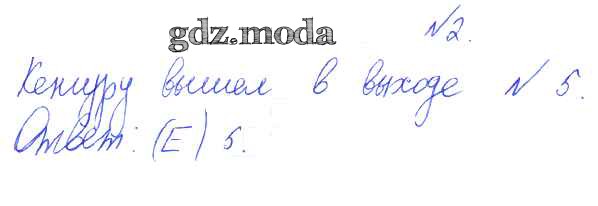 gdz.moda №2.
Кенгуру вышел в выходе № 5.
Ответ: (Е) 5.